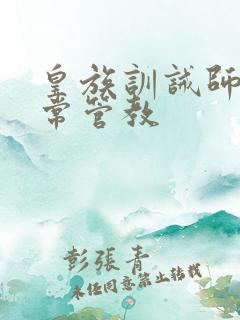 皇族訓誡師
常管教
彭張青
未經同意禁止轉載